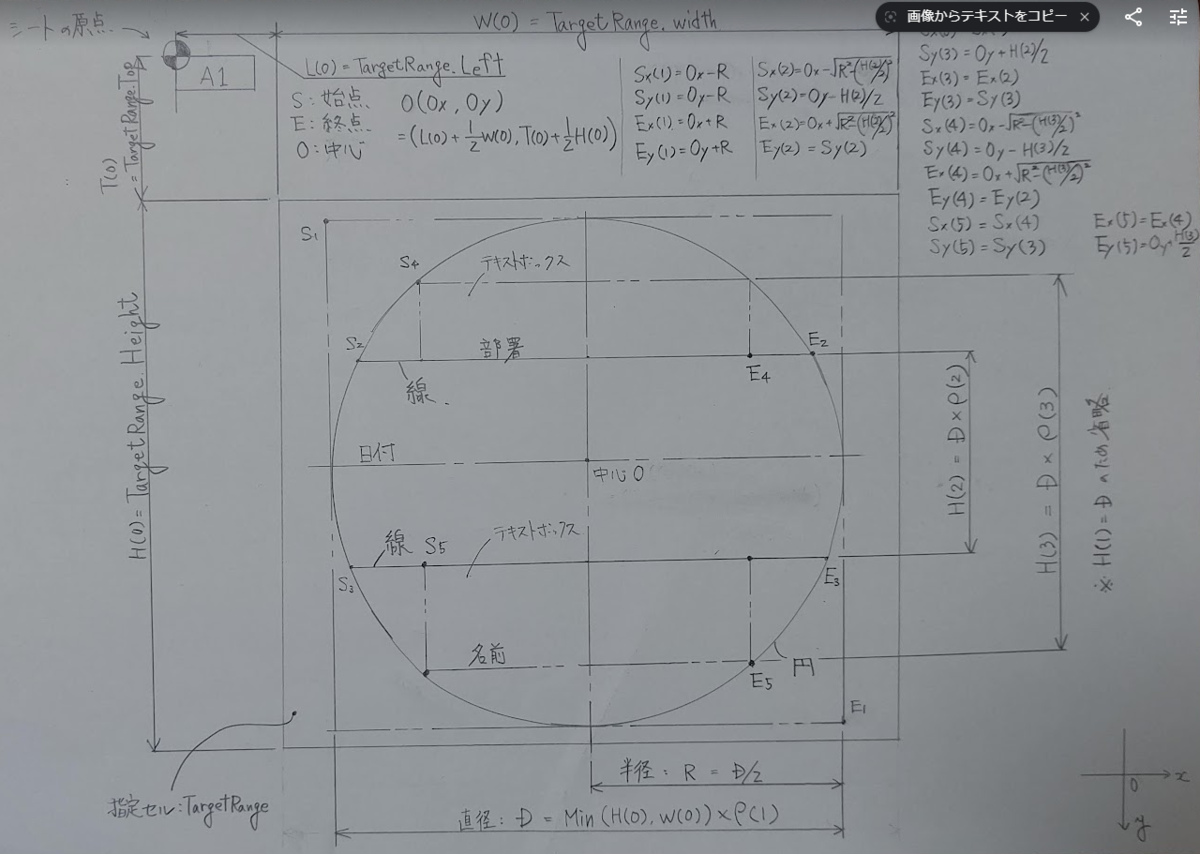 シートの原点
W(0) = TargetRange.width
画像からテキストをコピー
A1
L(0) = TargetRange.Left
S:始点
E:終点
O:中心
O(Ox, Oy)
=(L(0)+1/2W(0), T(0)+1/2H(0))
Sx(1)=Ox-R
Sy(1)=Oy-R
Ex(1)=Ox+R
Ey(1)=Oy+R
Sx(2)=Ox-√R²-(H(2)/2)²
Sy(2)=Oy-H(2)/2
Ex(2)=Ox+√R²-(H(2)/2)²
Ey(2)=Sy(2)
Sy(3)=Oy+H(2)/2
Ex(3)=Ex(2)
Ey(3)=Sy(3)
Sx(4)=Ox-√R²-(H(3)/2)²
Sy(4)=Oy-H(3)/2
Ex(4)=Ox+√R²-(H(3)/2)²
Ey(4)=Ey(2)
Sx(5)=Sx(4)
Sy(5)=Sy(3)
Ex(5)=Ex(4)
Ey(5)=Oy+H(3)/2
T(0)
=TargetRange.Top
H(0)=TargetRange.Height
S1
S4
テキストボックス
S2
部署
E2
線
E4
日付
中心O
線
S5
テキストボックス
S3
E3
名前
E5
円
E1
H(2) = D×ρ(2)
H(3) = D×ρ(3)
※H(1)=Dのため省略
指定セル:TargetRange
半径: R = D/2
直径: D = Min(H(0), W(0))×ρ(1)
O
x
y